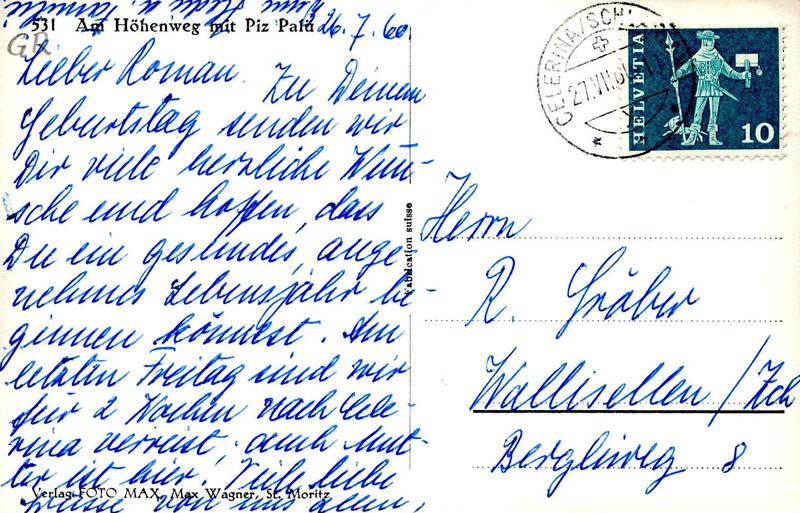 531 Am Höhenweg mit Piz Palü
GR
26.7.60.
Lieber Roman. Zu Deinem
Geburtstag senden wir
Dir viele herzliche Wün-
sche und hoffen, dass
Du ein gesundes, ange-
nehmes Lebensjahr be-
ginnen könnest. Am
letzten Freitag sind wir
für 2 Wochen nach Cele-
rina verreist, auch Mut-
ter ist hier. Viele liebe
Grüsse von uns allen,
Verlag FOTO MAX, Max Wagner, St. Moritz
Fabrication suisse
CELERINA/SCHL
27.VII.60
HELVETIA
10
Herrn
R. Gröber
Wallisellen / Zch
Berglweg 8